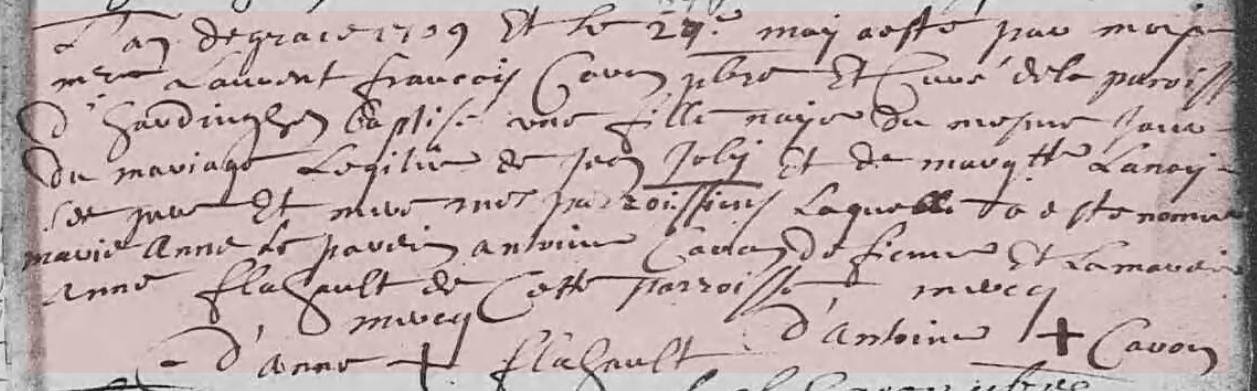 L'an de grace 1709 Et le 27e may a esté par moy
mre Laurent francois Caron pbre Et Curé dela paroisse
d'hardinghen baptisé une fille naye du mesme jour
du mariage Legitim de jean Joly Et de margtte Lanoy
ses pere Et mere mes parroissiens Laquelle a esté nomme
marie Anne Le parein antoine Caron de fienne Et La mareine
Anne flahault de Cette parroisse
mercq mercq
d'Anne + flahault d'Antoine + Caron